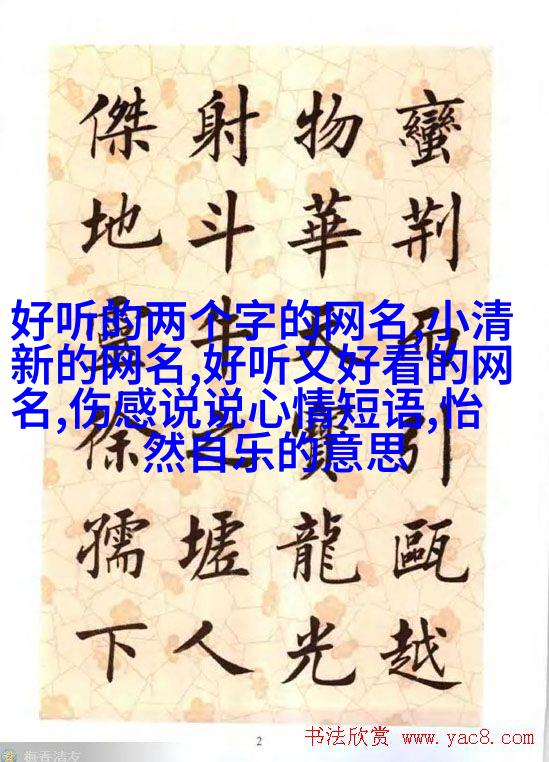 蠻荆而引甌越
物華天寶龍光
射斗牛之墟人
傑地靈徐孺下
好听的两个字的网名,小清
新的网名,好听又好看的网
名,伤感说说心情短语,怡
然自乐的意思
2
书法欣赏 www.yac8.com